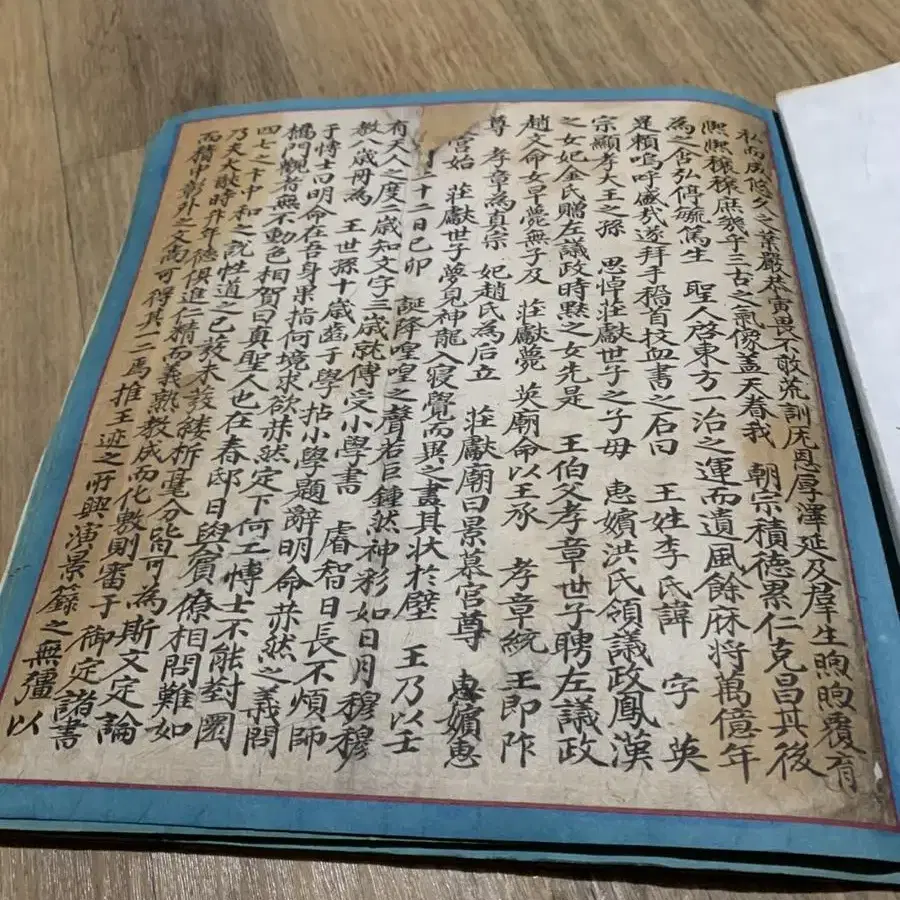 私而成悠久之業嚴恭寅畏不敢荒訓旡恩厚澤延及羣生煦煦覆育
熈熈穰穰庶幾乎三古之氣像盖天眷我 朝宗積德累仁克昌其後
為之啓弘停毓篤生 聖人啓東方一治之運而遺風餘庥將萬億年
是賴嗚呼盛㢤遂拜手稽首抆血書之石曰 王姓李氏諱 字 英
宗顯孝大王之孫 思悼莊獻世子之子母 惠嬪洪氏領議政鳳漢
之女妃金氏贈左議政時黙之女先是 王伯父孝章世子聘左議政
趙文命女早薨無子及 莊獻薨 英廟命以王承 孝章統 王即阼
尊 孝章為真宗 妃趙氏為后立 莊獻廟曰景慕宮尊 惠嬪惠
宮始 莊獻世子夢見神龍入寢覺而異之畵其状於壁 王乃以壬
二十二日己卯 誕降喤喤之聲若巨鍾然神彩如日月穆穆
有天人之度二歲知文字三歲就傅受小學書 睿智日長不煩師
教八歲冊為 王世孫十歲齒于學拈小學題辭明命赫然之義問
于博士曰明命在吾身果指何境求欲赫然定下何工博士不能對圜
橋門觀者無不動色相賀曰真聖人也在春邸日與賓僚相問難如
四七之卞中和之說性道之已發未發縷析毫分皆可為斯文定論
乃夫大猷時升年德俱進仁精而義熟教成而化敷則審于御定諸書
而積中彰外之文尚可得其一二焉推王迹之所興演景籙之無彊以